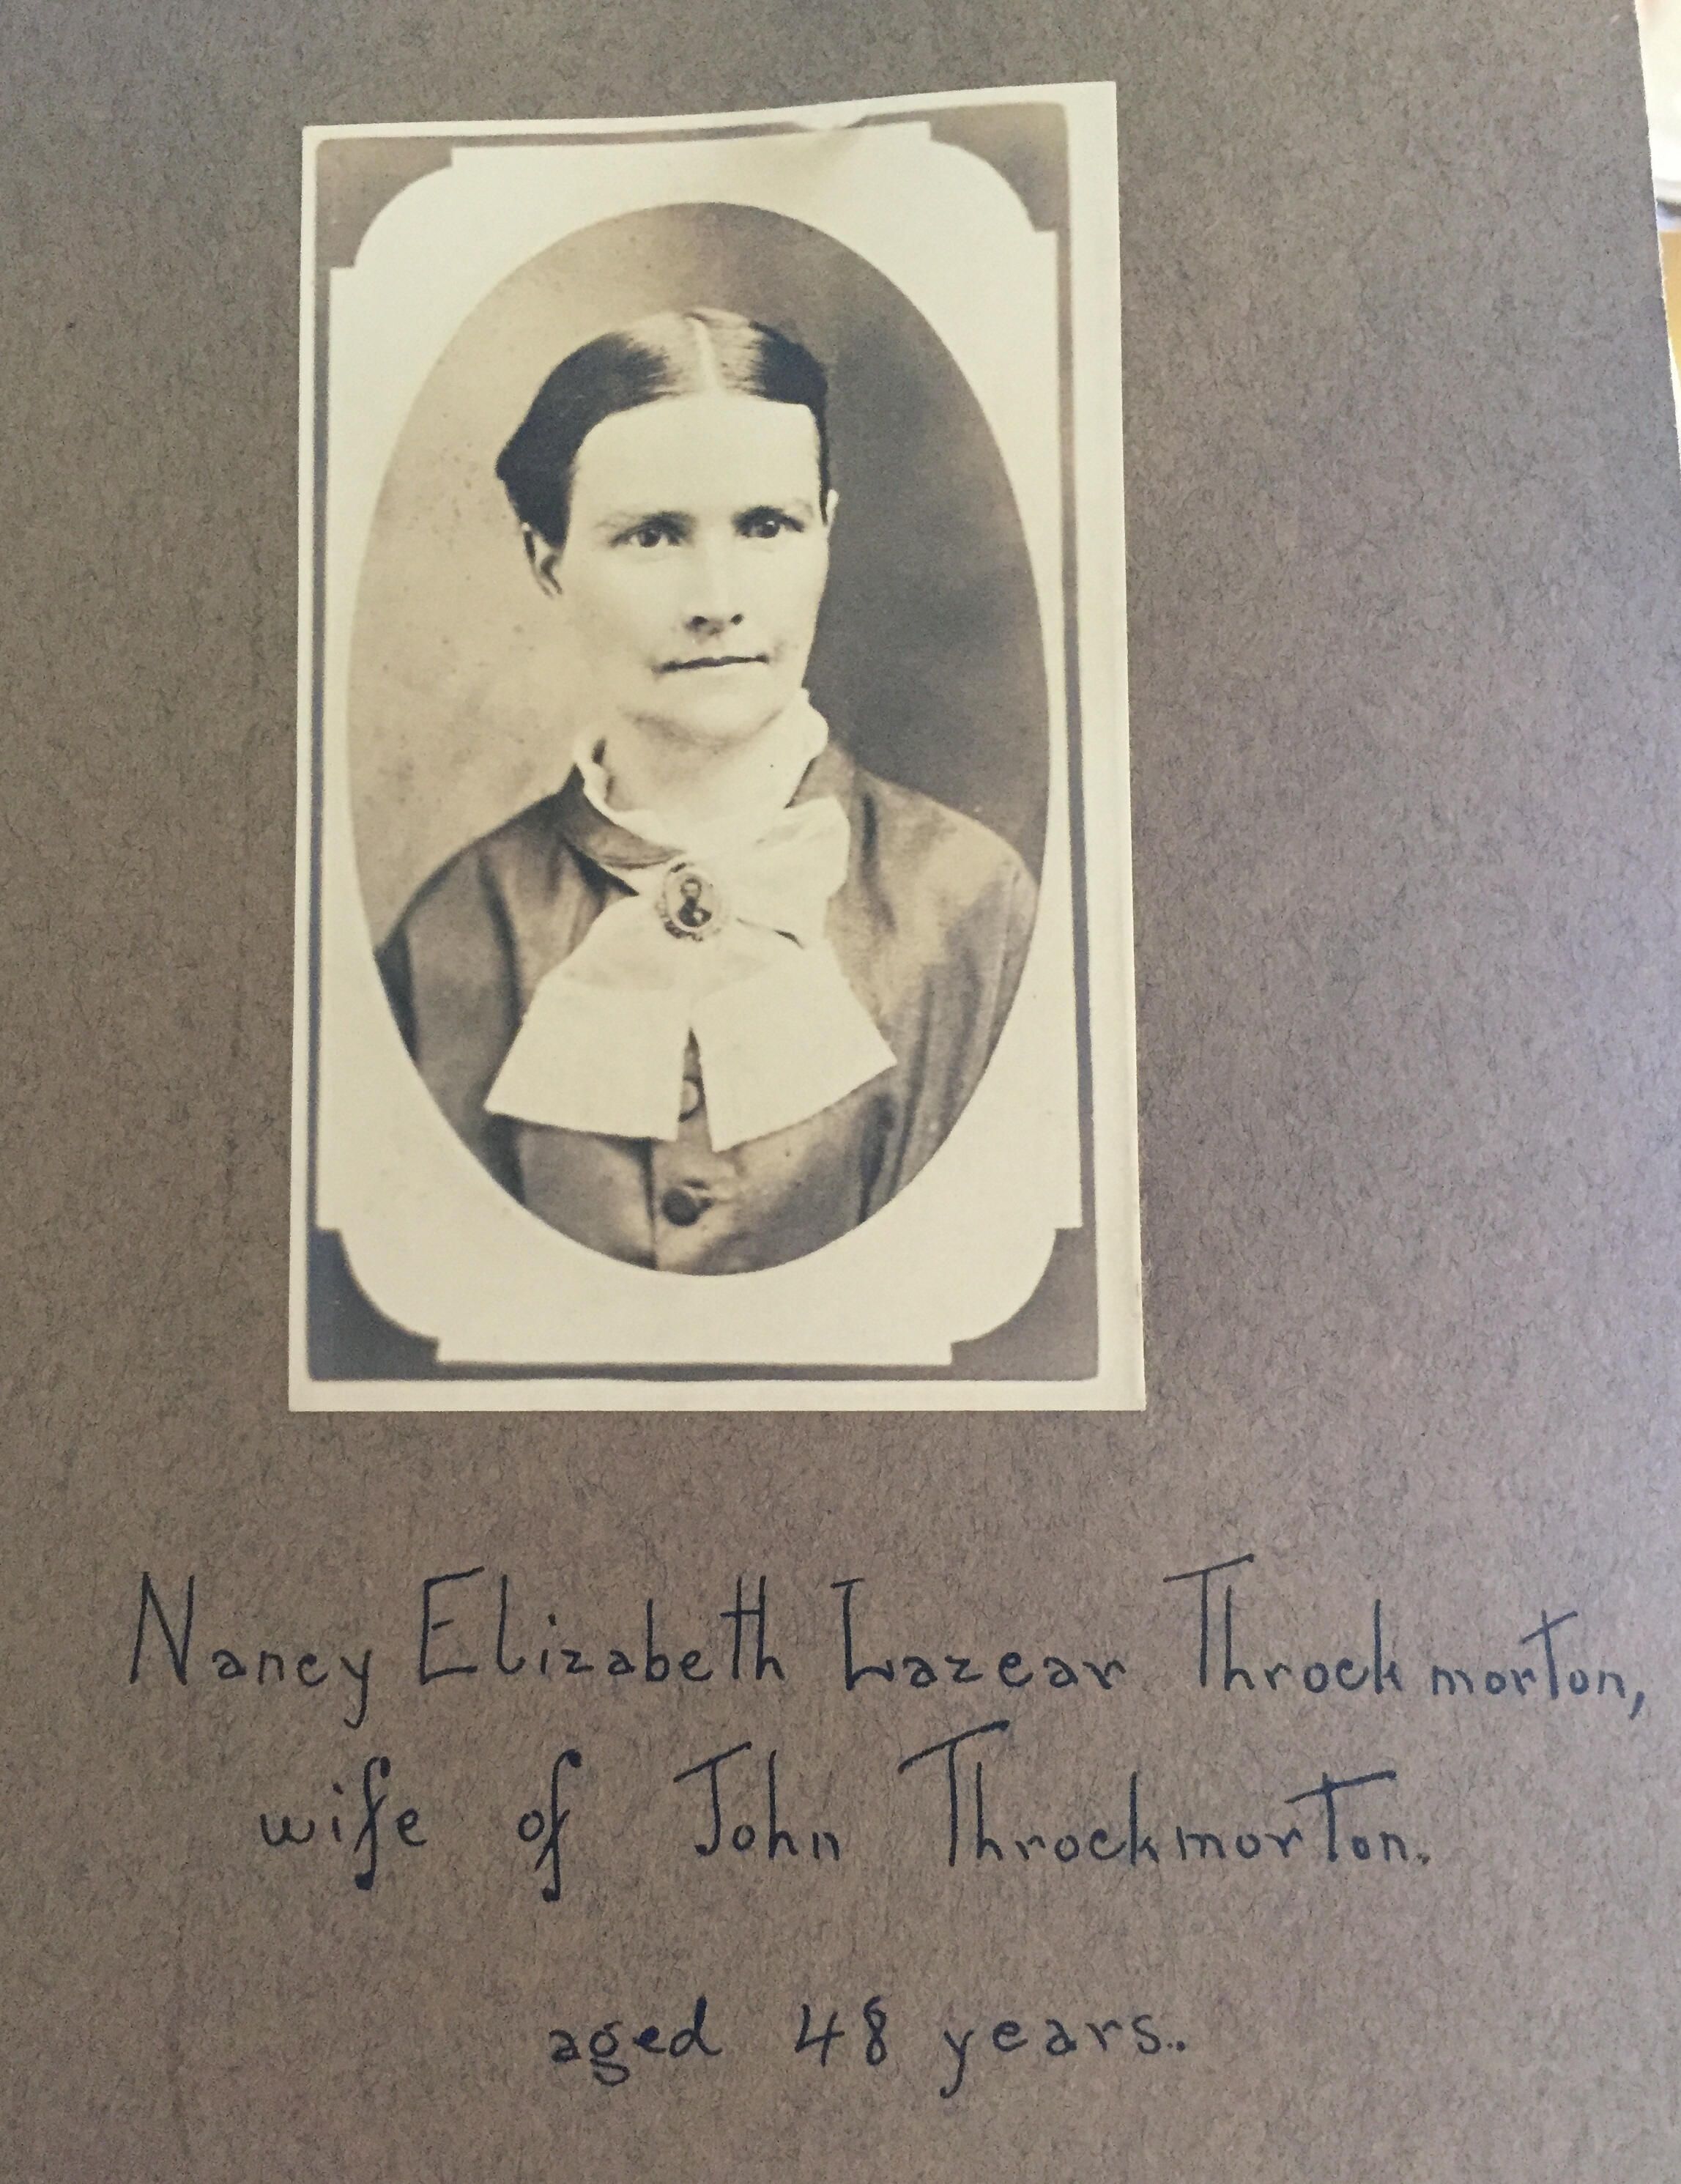 Nancy Elizabeth Lazear Throckmorton,
wife of John Throckmorton.
aged 48 years.